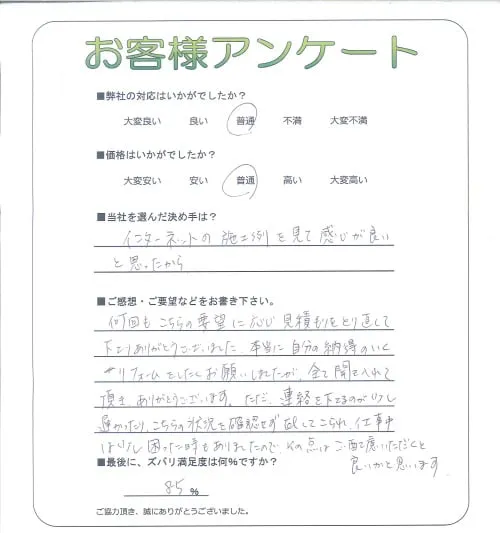 お客様アンケート
■弊社の対応はいかがでしたか？
大変良い 良い 普通 不満 大変不満
■価格はいかがでしたか？
大変安い 安い 普通 高い 大変高い
■当社を選んだ決め手は？
インターネットの施工例を見て感じが良い
と思ったから
■ご感想・ご要望などをお書き下さい。
何回もこちらの要望に応じ見積もりをとり直して
下さりありがとうございました。本当に自分の納得のいく
リフォームをしたくお願いしましたが、全て聞き入れて
頂き、ありがとうございます。ただ、連絡を下さるのが少し
遅かったり、こちらの状況を確認せず してこられ、仕事中
は少し困った時もありましたので、その点はご配慮いただくと
良いかと思います
■最後に、ズバリ満足度は何%ですか？
85 %
ご協力頂き、誠にありがとうございました。